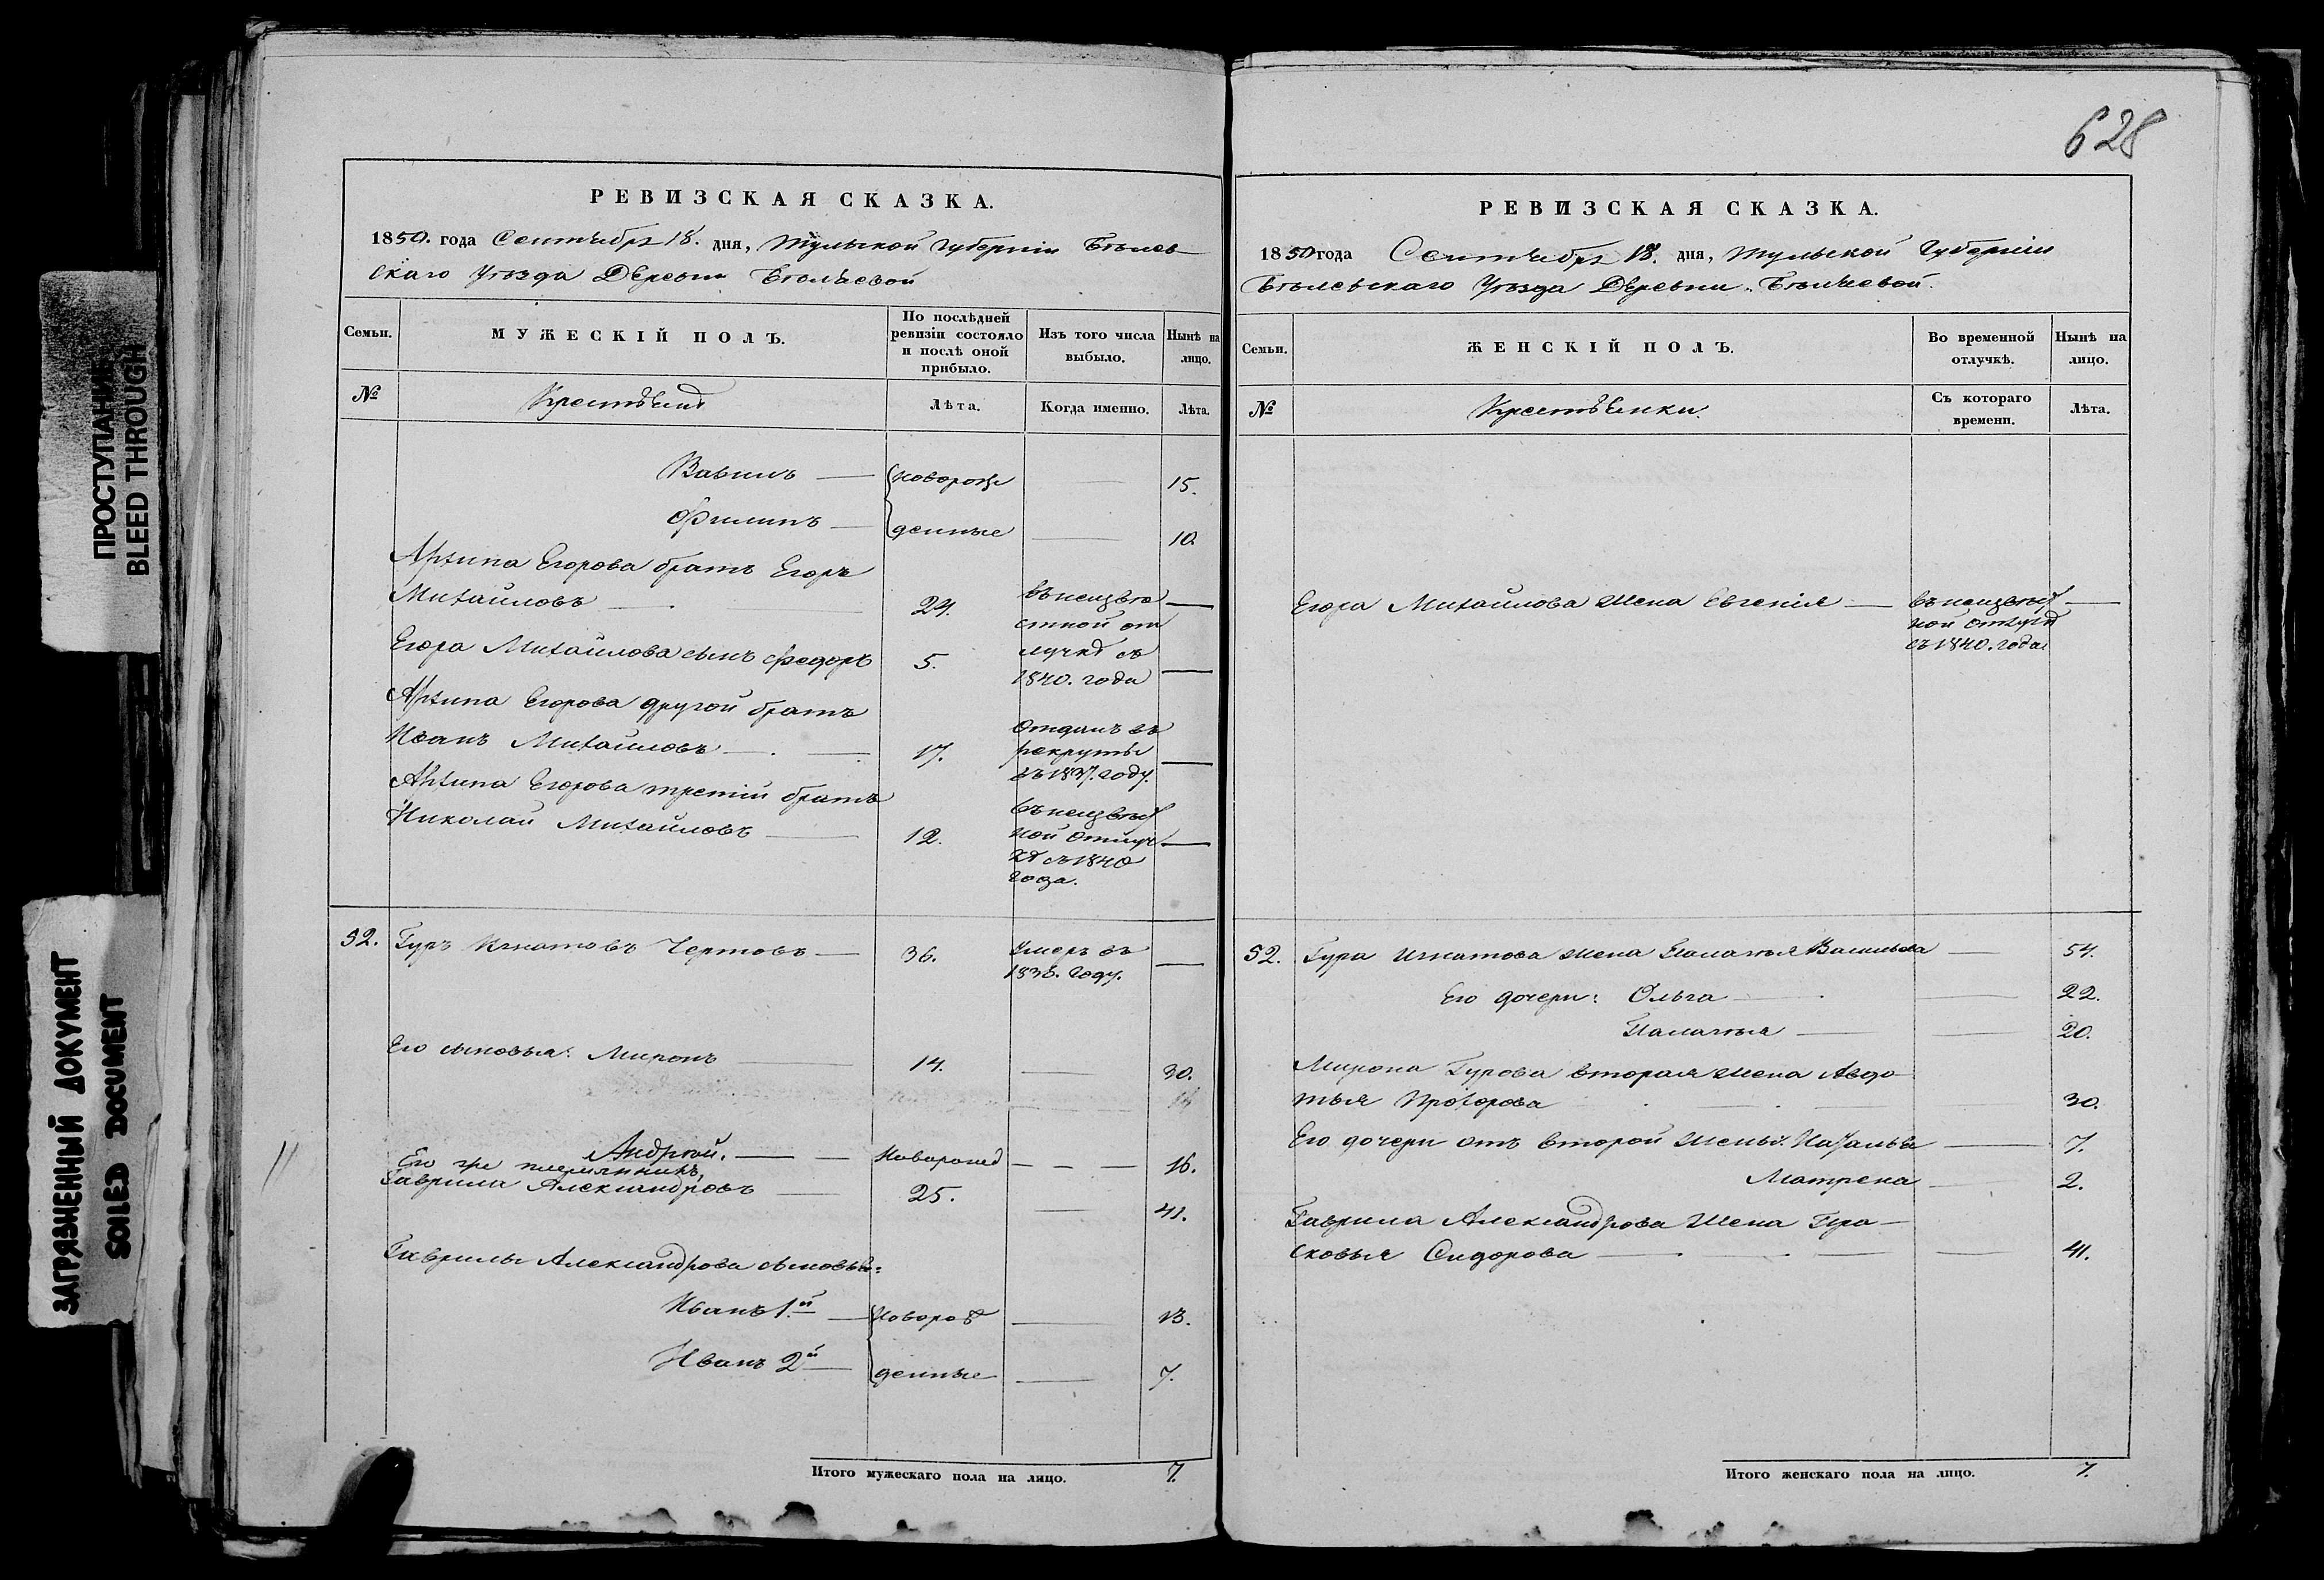 ПРОСТУПАНИЕ
BLEED THROUGH
ЗАГРЯЗНЕННЫЙ ДОКУМЕНТ
SOILED DOCUMENT
РЕВИЗСКАЯ СКАЗКА.
1850. года Сентября 18. дня, Тульской Губерніи Бѣлев-
скаго Уѣзда Деревни Бѣляевой
Семьи.
МУЖЕСКІЙ ПОЛЪ.
По послѣдней
ревизіи состояло
и послѣ оной
прибыло.
Изъ того числа
выбыло.
Нынѣ на
лицо.
№
Крестьяне
Лѣта.
Когда именно.
Лѣта.
Вавилъ — новорож 15.
Филипъ — денные 10.
Архипа Егорова братъ Егоръ
Михайловъ — 24. въ неизвѣ
стной от
Егора Михайлова сынъ Федоръ 5. лучкѣ съ
1840. года
Архипа Егорова другой братъ
Иванъ Михайловъ — 17. Отданъ въ
рекруты
въ 1837. году.
Архипа Егорова третій братъ
Николай Михайловъ — 12. въ неизвѣст
ной отлуч
кѣ съ 1840
года.
52. Гуръ Игнатовъ Чертовъ — 36. Умеръ въ
1836. году.
Его сыновья: Миронъ — 14. — 30.
Андрей. — Новорожд — 16.
Его же племянникъ,
Гаврила Александровъ — 25. — 41.
Гаврилы Александрова сыновья:
Иванъ 1й — Новорож — 13.
Иванъ 2й — денные — 7.
Итого мужескаго пола на лицо. 7.
628
РЕВИЗСКАЯ СКАЗКА.
1850 года Сентября 18. дня, Тульской Губерніи
Бѣлевскаго Уѣзда Деревни Бѣляевой.
Семьи.
ЖЕНСКІЙ ПОЛЪ.
Во временной
отлучкѣ.
Нынѣ на
лицо.
№
Крестьянки.
Съ котораго
времени.
Лѣта.
Егора Михайлова жена Евгенія — въ неизвѣст
ной отлучкѣ
съ 1840. года
52. Гура Игнатова жена Палагья Васильева — 54.
Его дочери: Ольга — 22.
Палагья — 20.
Мирона Гурова вторая жена Авдо
тья Прохорова — 30.
Его дочери отъ второй жены: Наталья — 7.
Матрена — 2.
Гаврила Александрова жена Пра-
сковья Сидорова — 41.
Итого женскаго пола на лицо. 7.